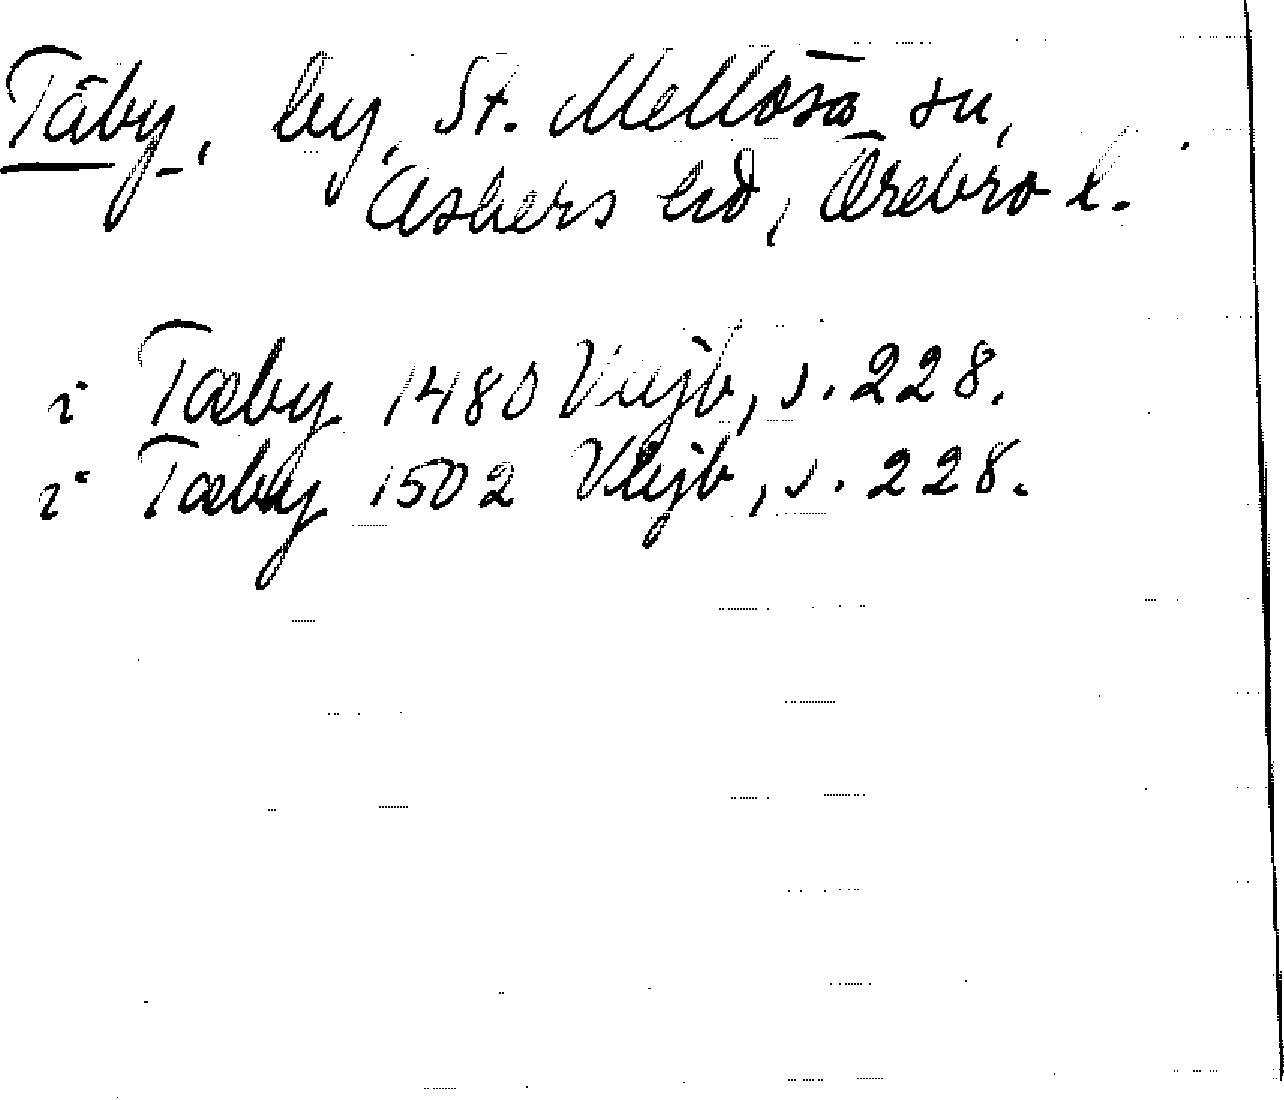 Täby, by, St. Mellösa sn,
Askers hd, Örebro l.
i Tæby 1480 Vgjb, s. 228.
i Tæby 1502 Vgjb, s. 228.